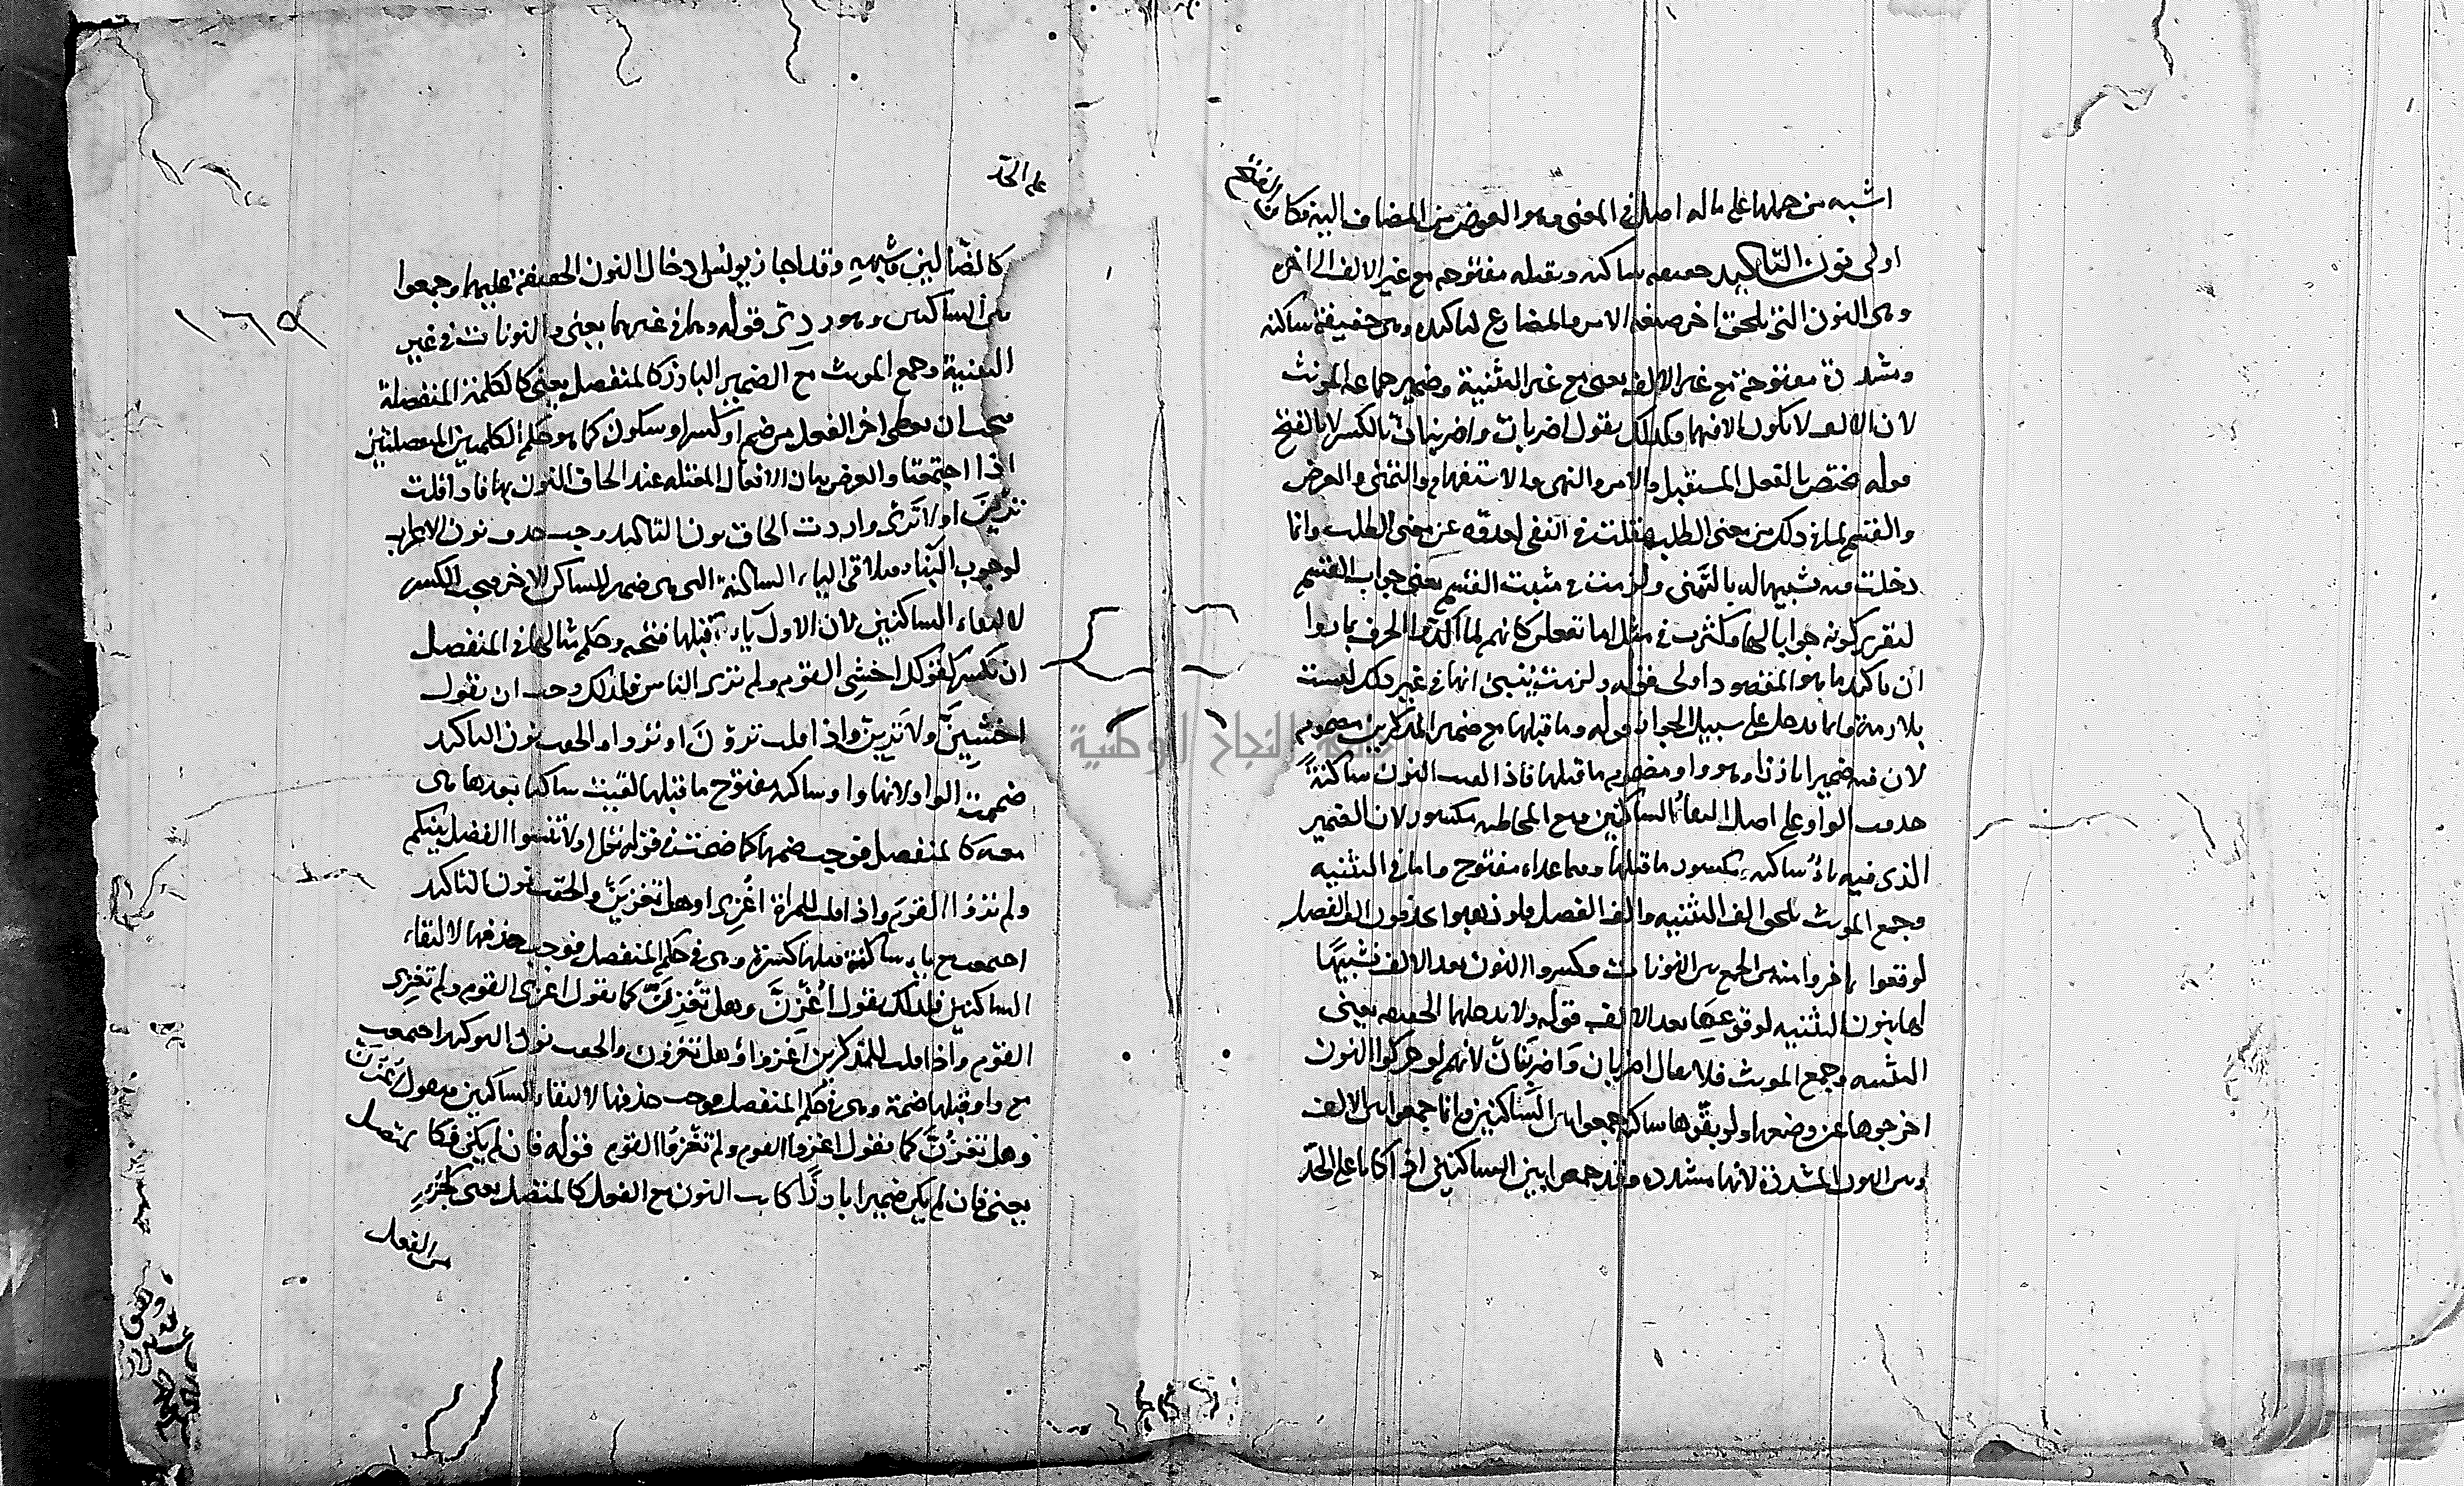 اشبه من حملها على ما له اصل في المعنى وهو العوض من المضاف اليه فكان الفتح
اولى نون التاكيد خفيفة ساكنه وثقيله مفتوحه مع غير الالف الى اخره
وهى النون التي تلحق اخر صيغة الامر والمضارع لتاكيده وهى خفيفة ساكنه
ومشددة مفتوحة مع غير الالف يعنى مع غير التثنية وضمير جماعه المونث
لان الالف لا تكون الا فيهما وكذلك يقول اضربان واضربنان بالكسر لا بالفتح
قوله يختص بالفعل المستقبل والامر والنهى والاستفهام والتمنى والعرض
والقسم لما في ذلك من معنى الطلب وقلت في النفى لعدوّه عن معنى الطلب وانما
دخلت فيه تشبيها له بالنهى ولزمت في مثبت القسم يعنى جواب القسم
لتقرير كونه جوابا لها وكثرت في مثل اما تفعلن كانهم لما اكدوا الحرف بما راوا
ان تاكيد ما هو المقصود اولى فقوله ولزمت ينبئ انها في غير ذلك ليست
بلازمة وانما تدخل على سبيل الجواز قوله وما قبلها مع ضمير المذكرين مضموم
لان فيه ضميرا بارزا وهو واو مضموم ما قبلها فاذا لقيت النون ساكنةً
حذفت الواو على اصل التقاء الساكنين ومع المخاطبه مكسور لان الضمير
الذى فيه ياءٌ ساكنه مكسور ما قبلها وفيما عداه مفتوح واما في التثنيه
وجمع المونث تلحق الف التثنيه والف الفصل فلو ذهبوا يحذفون الف الفصل
لوقعوا فيما فروا منه من الجمع بين النونات وكسروا النون بعد الالف تشبيهًا
لها بنون التثنيه لوقوعها بعد الالف قوله ولا تدخلها الخفيفه يعنى
التثنيه وجمع المونث فلا يقال اضربان واضربنان لأنهم لو حركوا النون
اخرجوها عن وضعها ولو بقّوها ساكنه جمعوا بين الساكنين وانما جمعوا بين الالف
وبين النون المشددة لانها مشدده وقد جمعوا بين الساكنين اذا كانا على الحدّ
على الحدّ
كالضّالين وشبهه وقد اجاز يونس ادخال النون الخفيفة عليهما وجمعوا
بين الساكنين وهو ردئ قوله وهما في غيرهما يعنى والنونات في غير
التثنية وجمع المونث مع الضمير البارز كالمنفصل يعنى كالكلمة المنفصلة
فيجب ان يعطى اخر الفعل من ضم او كسر او سكون كما هو حكم الكلمتين المنفصلتين
اذا اجتمعتا والغرض بيان الافعال المعتله عند الحاق النون بها فاذا قلت
ترَينَ او لا ترَىْ واردت الحاق نون التاكيد وجب حذف نون الاعراب
لوجوب البناء فتلاقى الياء الساكنة التى هى ضمير الساكن الاخر فيجب الكسر
لالتقاء الساكنين لان الاول ياء قبلها فتحه وحكم مثالها في المنفصل
ان تكسر كقولك اخشِى القوم ولم ترى الناس فلذلك وجب ان يقول
اخشَيِنَّ ولا تريِنّ واذا قلت ترَوْنَ او ترَوا والحقت نون التاكيد
ضممت الواو لانها واو ساكنه مفتوح ما قبلها لقيت ساكنا بعدها هى
معه كالمنفصل فوجب ضمها كما ضمت في قوله تعالى ولا تنسوا الفضل بينكم
ولم تروُا القوم واذا قلت للمراة اغزِى او هل تغزين والحقت نون التاكيد
اجتمعت مع ياء ساكنة قبلها كسرة وهى في حكم المنفصل فوجب حذفها لالتقاء
الساكنين فلذلك يقول اُغزِنَّ وهل تغزِنَّ كما يقول اغزى القوم ولم تغزى
القوم واذا قلت للمذكرين اغزوا وهل تغزون والحقت نون التوكيد اجتمعت
مع واو قبلها ضمة وهى في حكم المنفصل فوجب حذفها لالتقاء الساكنين فيقول اُغزُنّ
وهل تغزُنَّ كما يقول اغزوا القوم ولم تغزوا القوم قوله فان لم يكن فكالمتصل
يعنى فان لم يكن ضميرا بارزًا كانت النون مع الفعل كالمتصل يعنى كجزءٍ
من الفعل
١٦٥
جامعة النجاح الوطنية